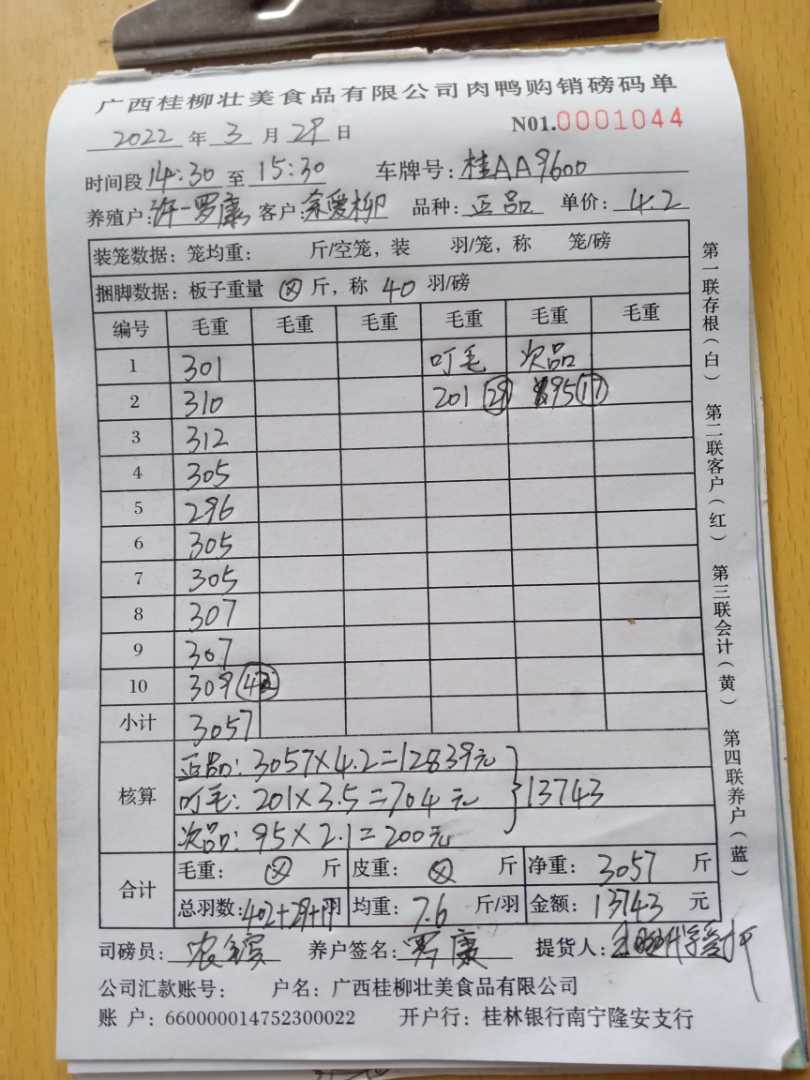 广西桂柳壮美食品有限公司肉鸭购销磅码单
2022 年 3 月 29 日 N01.0001044
时间段 14:30 至 15:30 车牌号: 桂AA9600
养殖户: 许一罗康 客户: 爱柳 品种: 正品 单价: 4.2
装笼数据: 笼均重: 斤/空笼, 装 羽/笼, 称 笼/磅
捆脚数据: 板子重量 ⊗ 斤, 称 40 羽/磅
编号 毛重 毛重 毛重 毛重 毛重 毛重
1 301 叮毛 次品
2 310 201 (29) 95 (17)
3 312
4 305
5 296
6 305
7 305
8 307
9 307
10 309
小计 3057
核算
正品: 3057×4.2=12839元
叮毛: 201×3.5=704元 }13743
次品: 95×2.1=200元
合计
毛重: ⊗ 斤 皮重: ⊗ 斤 净重: 3057 斤
总羽数: 402+29+ 羽 均重: 7.6 斤/羽 金额: 13743 元
司磅员: 农 养户签名: 罗康 提货人:
公司汇款账号: 户名: 广西桂柳壮美食品有限公司
账 户: 660000014752300022 开户行: 桂林银行南宁隆安支行
第一联存根(白) 第二联客户(红) 第三联会计(黄) 第四联养户(蓝)